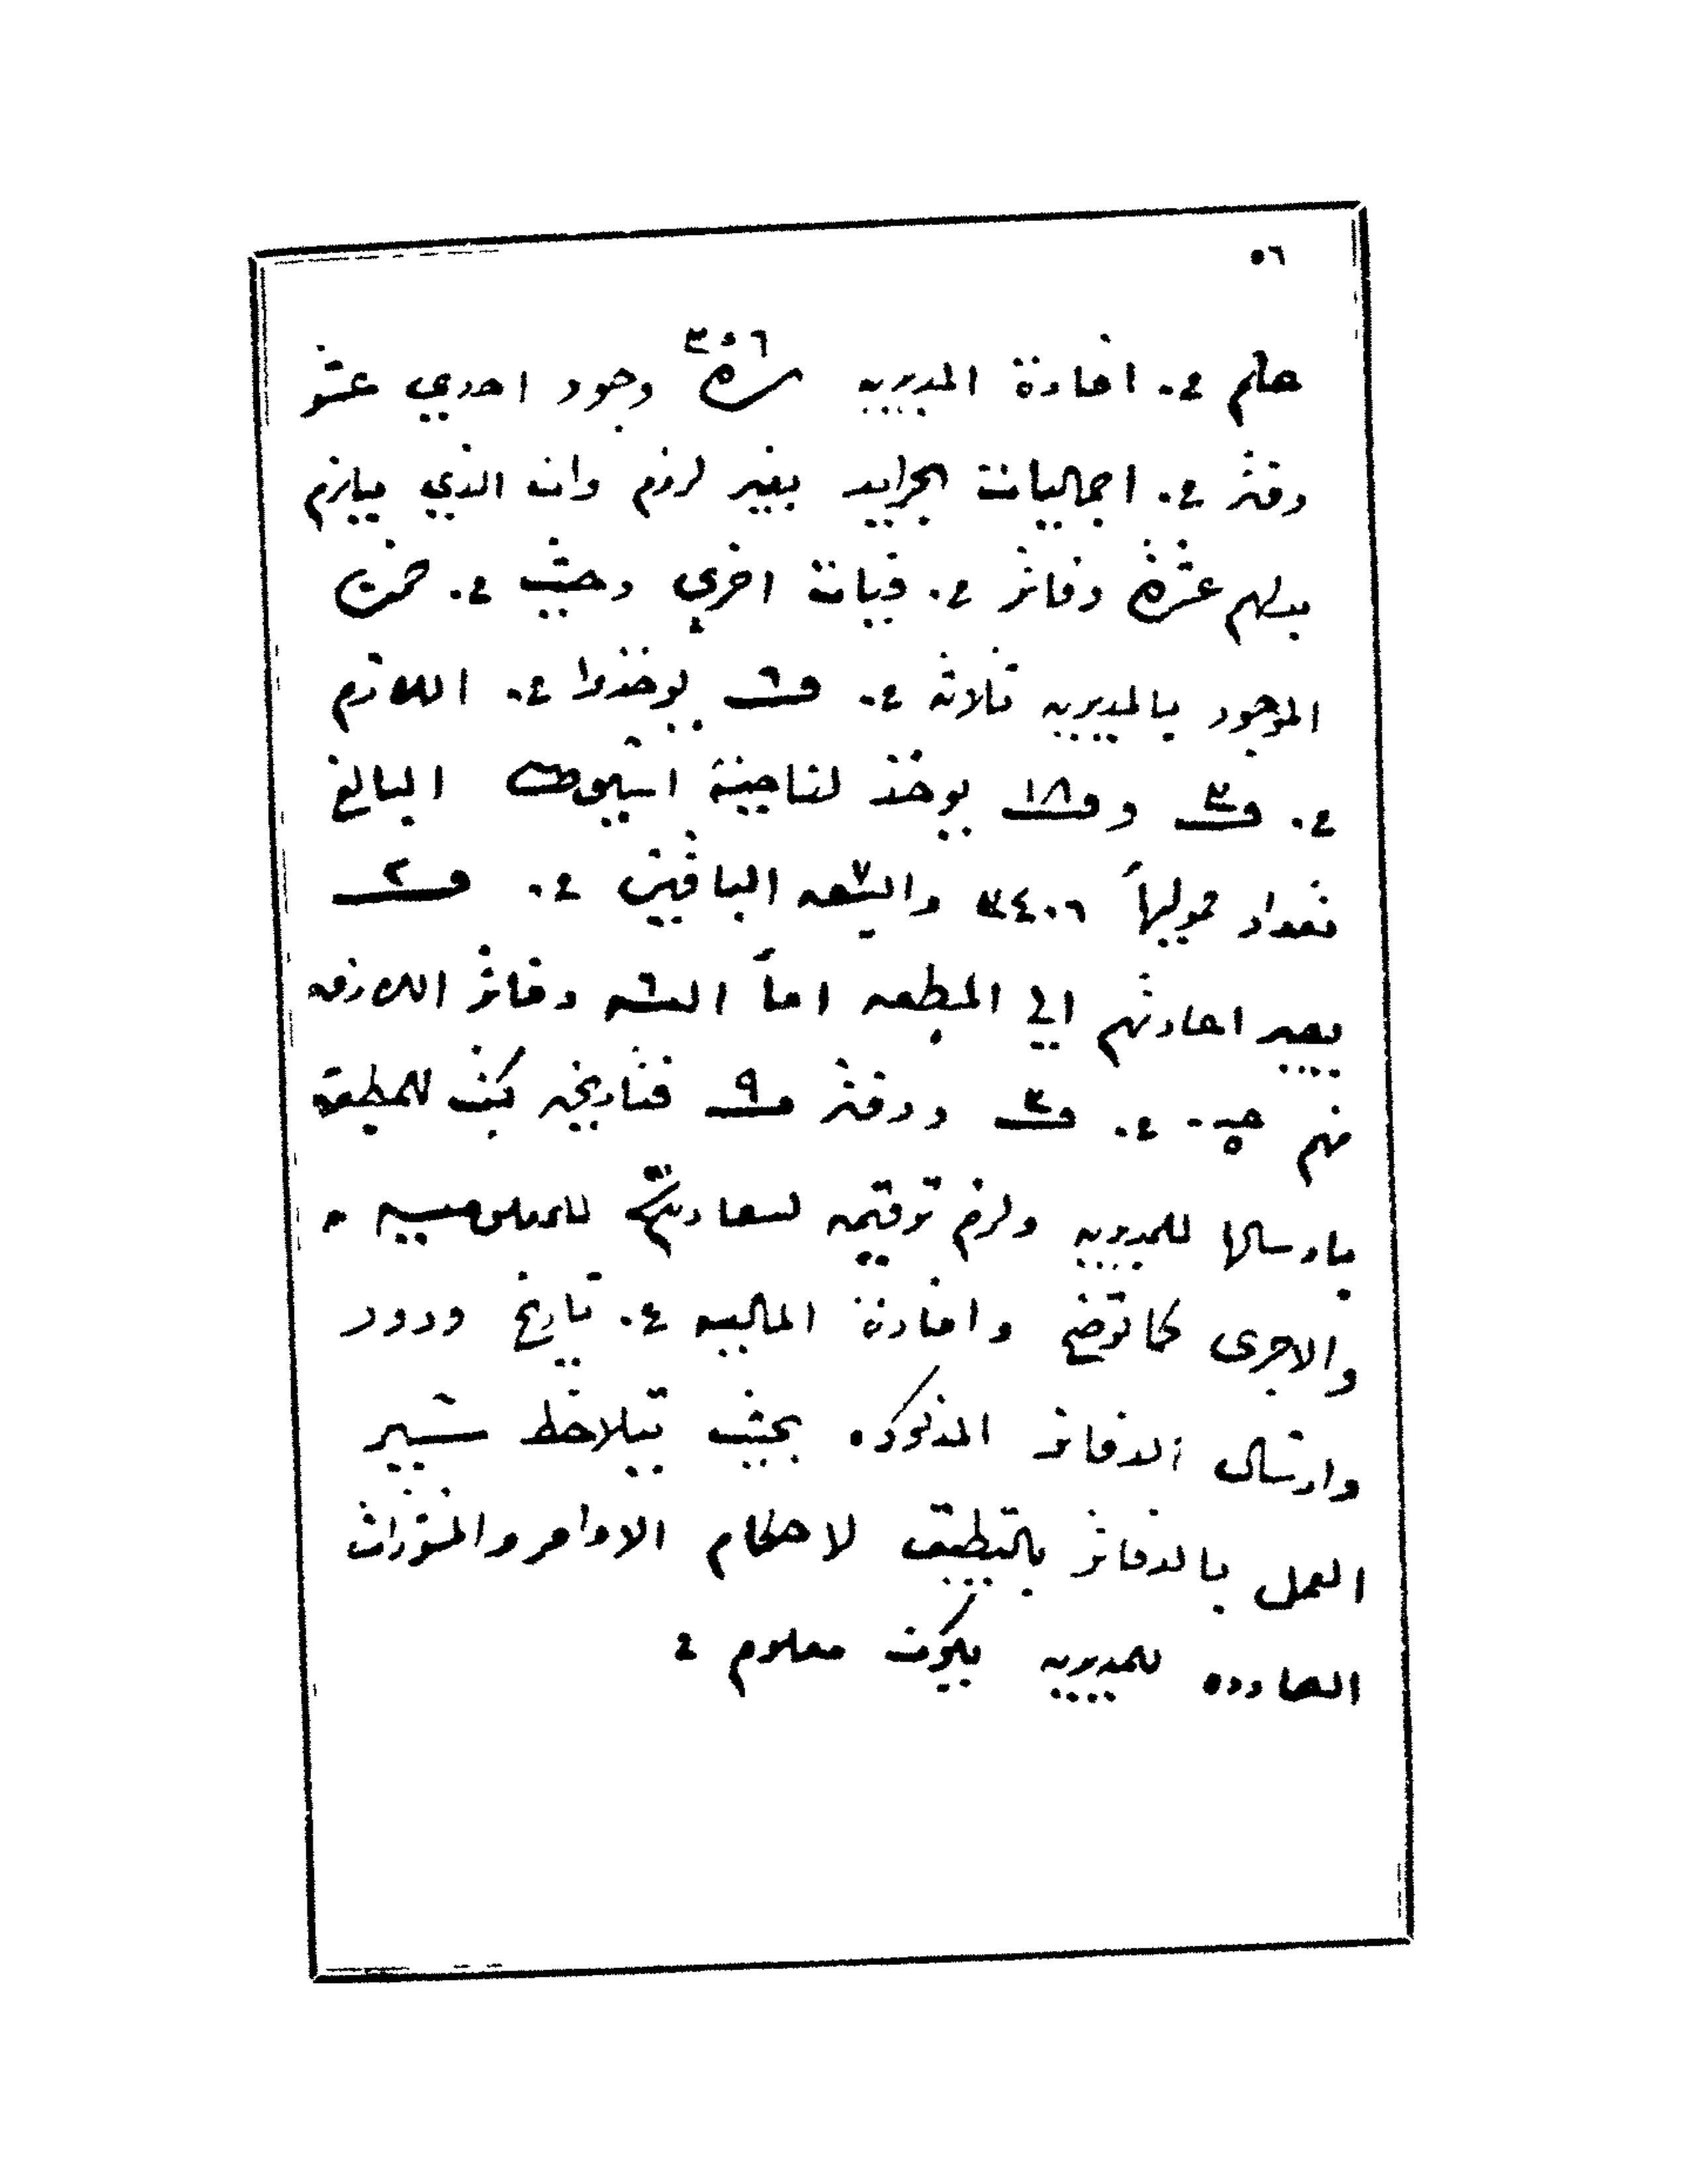 ٥٦
علم ع. افادة المديريه نمرة ٣٥٦ وجود احدي عشر
دفتر ع. اجماليات الجرايد بغير لزوم وان الذي يلزم
بدلهم عشرة دفاتر ع. فيات اخري وحيث ع. ضمن
الموجود بالمديريه ثلاثه ع. ف ٦ يوخذوا ع. اللازم
ع. ف ٣ و ف ١٨ يوخذ لناحية اسيوط البالغ
تعداد مموليها ٣٤٠٦ والسبعه ٧ الباقين ع. ف ٢
يصير اعادتهم الي المطبعه اما السته ٦ دفاتر اللازمه
منهم ٥ ع. ف ٣ ودفتر ف ٩ فتاريخه كتب للمطبعة
بارسالها للمديريه ولزم ترقيمه لسعادتكم للمعلوميه
والاجرى كما توضح وافادة الماليه ع. تاريخ ورود
وارسال الدفاتر المذكوره بحيث يتلاحظ سير
العمل بالدفاتر بالتطبيق لاحكام الاوامر والمنشورات
الصادره للمديريه ليكون معلوم